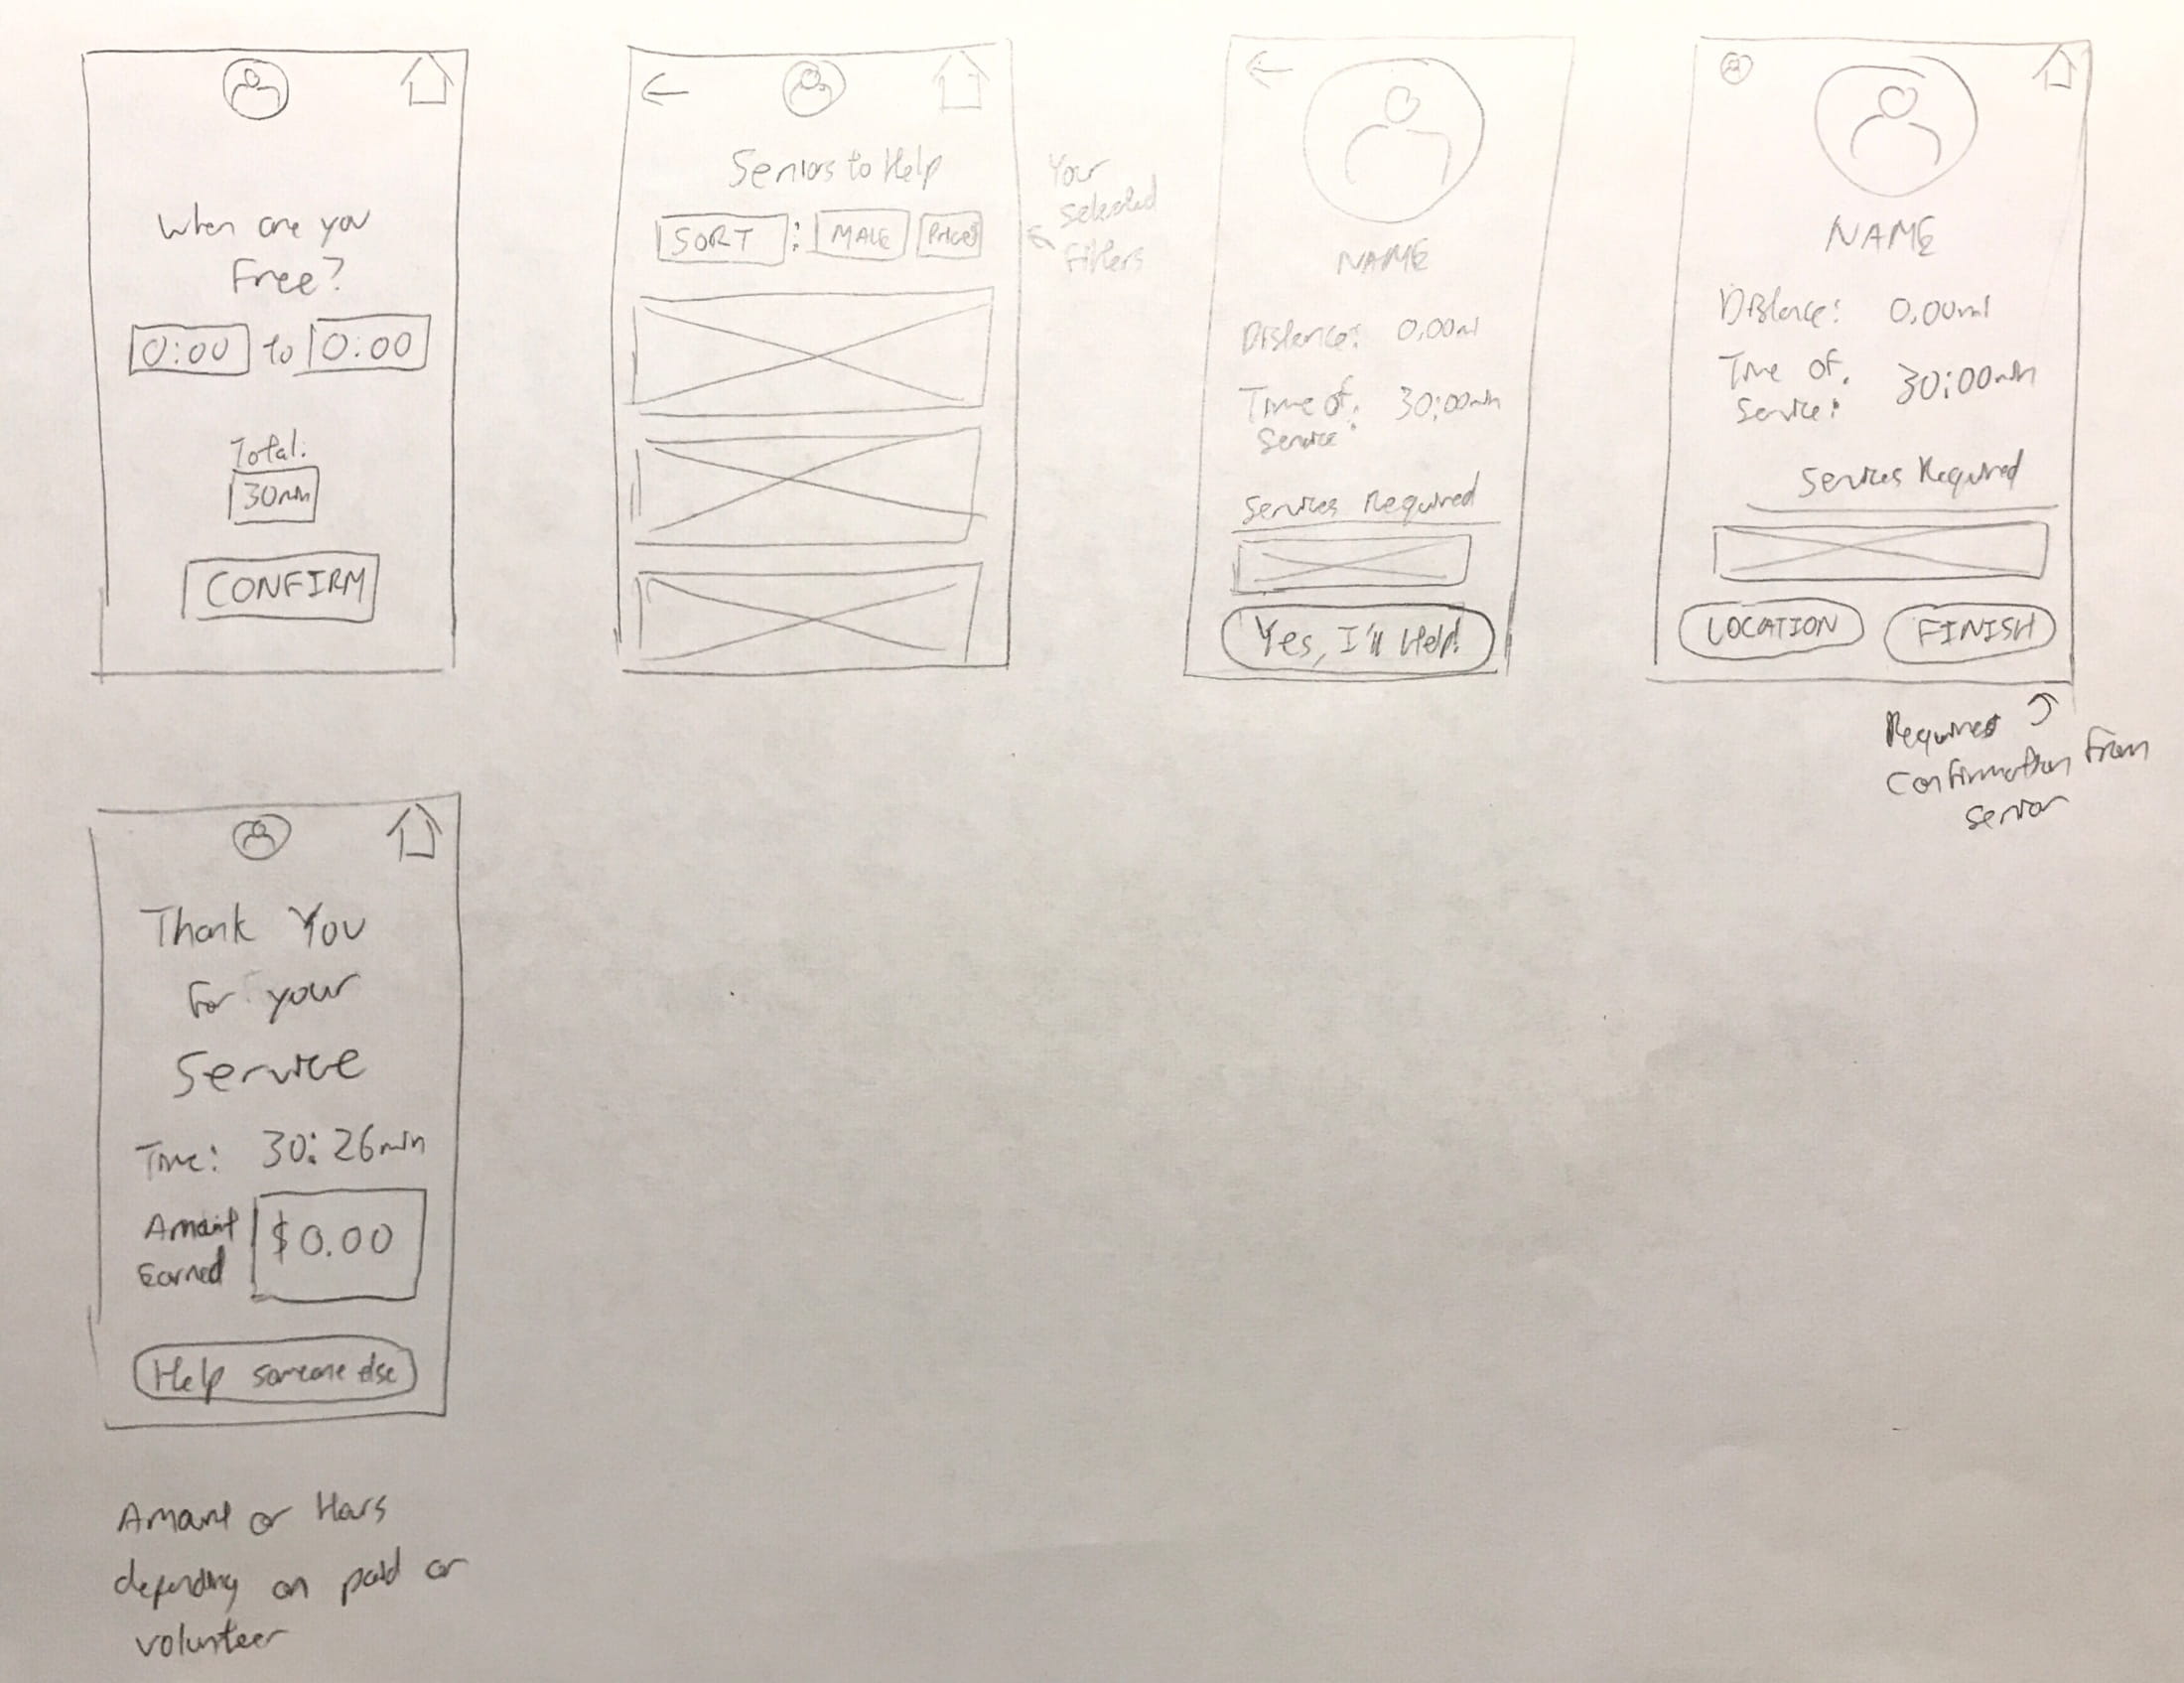 When are you
Free?
0:00 to 0:00
Total:
30min
CONFIRM
Seniors to Help
SORT : MALE Prices
Your
selected
filters
NAME
Distance: 0.00ml
Time of 30:00min
Service:
Services Required
Yes, I'll Help!
NAME
Distance: 0.00ml
Time of 30:00min
Service:
Services Required
LOCATION FINISH
Requires
Confirmation From
Senior
Thank You
For your
Service
Time: 30:26min
Amount $0.00
Earned
Help someone else
Amount or Hours
depending on paid or
volunteer